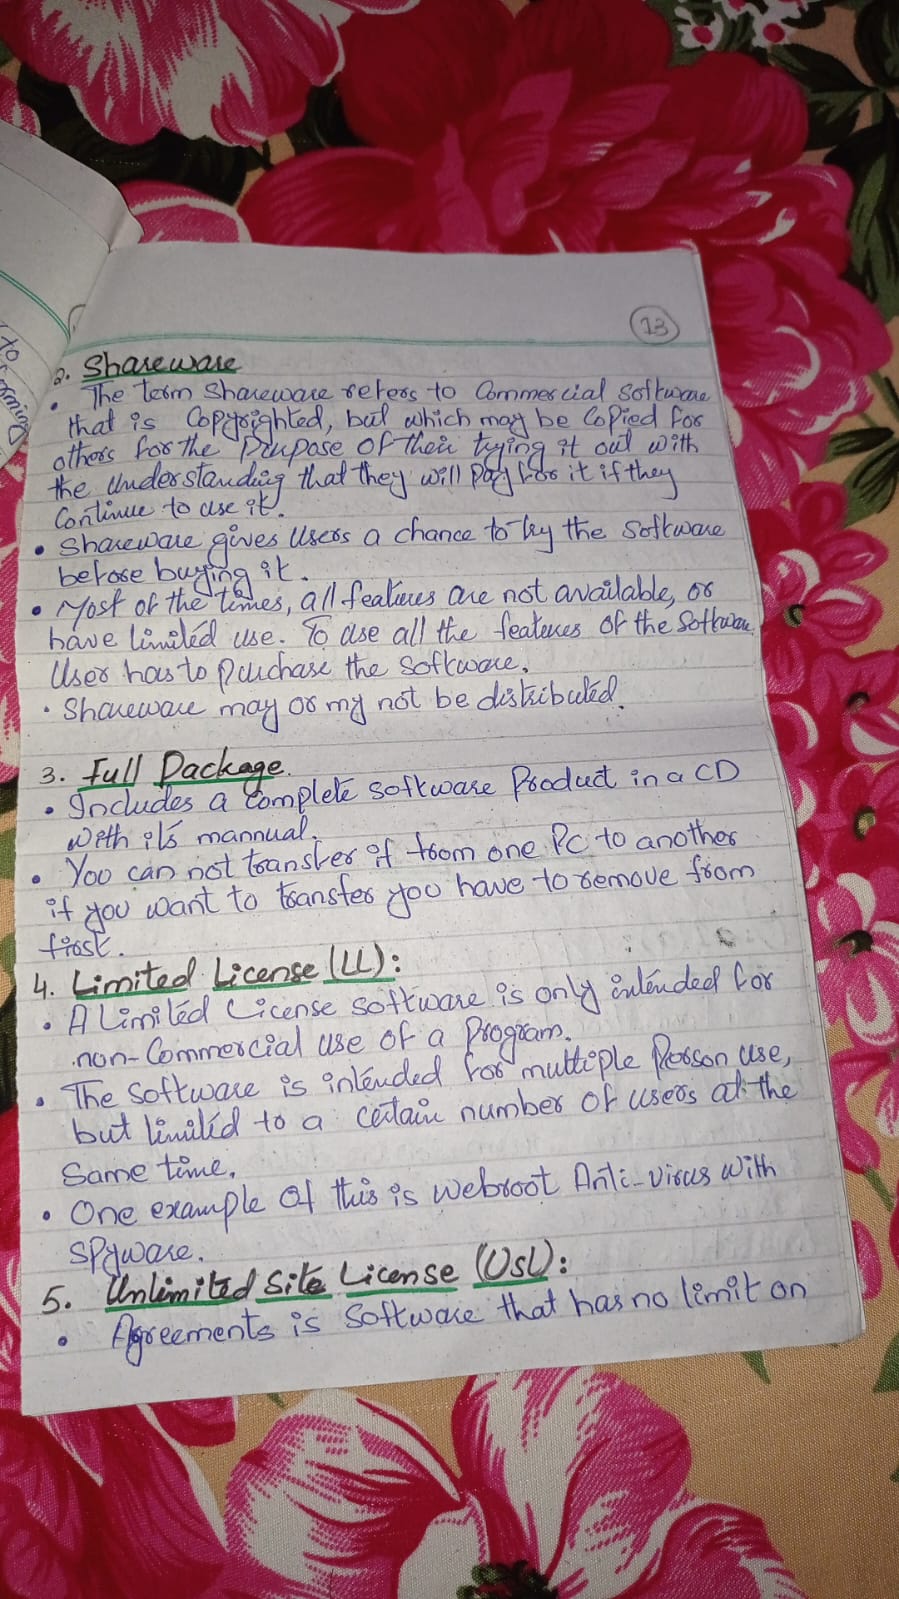 13
2. Shareware
• The term Shareware refers to Commercial software
that is Copyrighted, but which may be Copied for
others for the Purpose of their trying it out with
the understanding that they will pay for it if they
Continue to use it.
• Shareware gives users a chance to try the software
before buying it.
• Most of the times, all features are not available, or
have limited use. To use all the features of the Software
User has to purchase the software.
• Shareware may or my not be distributed.
3. Full Package.
• Includes a Complete software Product in a CD
with it's mannual.
• You can not transfer if from one PC to another
if you want to transfer you have to remove from
first.
4. Limited License (LL):
• A Limited License software is only intended for
non-Commercial use of a Program.
• The Software is intended for multiple Person use,
but limited to a certain number of users at the
Same time.
• One example of this is webroot Anti-virus with
Spyware.
5. Unlimited Site License (USL):
• Agreements is Software that has no limit on
to